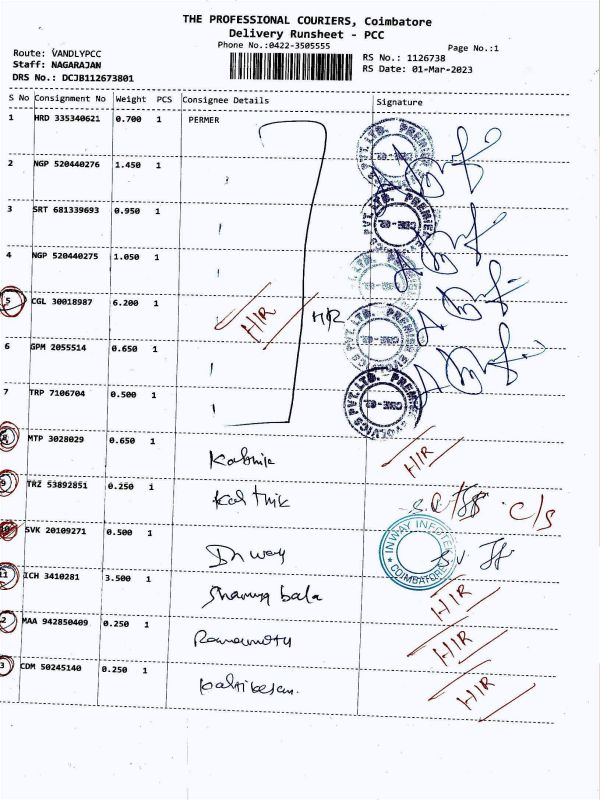 THE PROFESSIONAL COURIERS, Coimbatore
Delivery Runsheet - PCC
Phone No.:0422-3505555
Page No.:1
Route: VANDLYPCC
Staff: NAGARAJAN
DRS No.: DCJB112673801
RS No.: 1126738
RS Date: 01-Mar-2023
S No Consignment No Weight PCS Consignee Details Signature
1 HRD 335340621 0.700 1 PERMER
2 NGP 520440276 1.450 1
3 SRT 681339693 0.950 1
4 NGP 520440275 1.050 1
5 CGL 30018987 6.200 1 H/R H/R
6 GPM 2055514 0.650 1
7 TRP 7106704 0.500 1
8 MTP 3028029 0.650 1 H/R
9 TRZ 53892851 0.250 1 Karthik C/S
10 SVK 20109271 0.500 1 Inway
INWAY INFOTEK
COIMBATORE
11 ICH 3410281 3.500 1 bala H/R
2 MAA 942850409 0.250 1 H/R
3 CDM 50245140 0.250 1 H/R
PVT.LTD. PREMIER
CBE-02